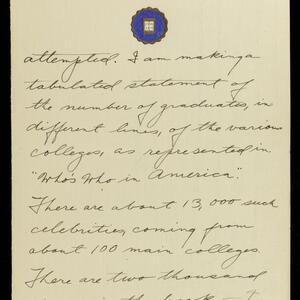 attempted. I am making a
tabulated statement of
the number of graduates, in
different lines, of the various
colleges, as represented in
"Who's Who in America".
There are about 13,000 such
celebrities, coming from
about 100 main colleges.
There are two thousand